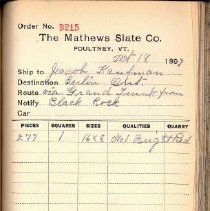 Order No. B215
The Mathews Slate Co.
POULTNEY, VT.
Oct 18 1897
Ship to Jacob Kaufman
Destination Berlin Ont
Route via Grand Trunk from
Notify Black Rock
Car
PIECES SQUARES SIZES QUALITIES QUARRY
277 1 16x8 No1 Bright Red